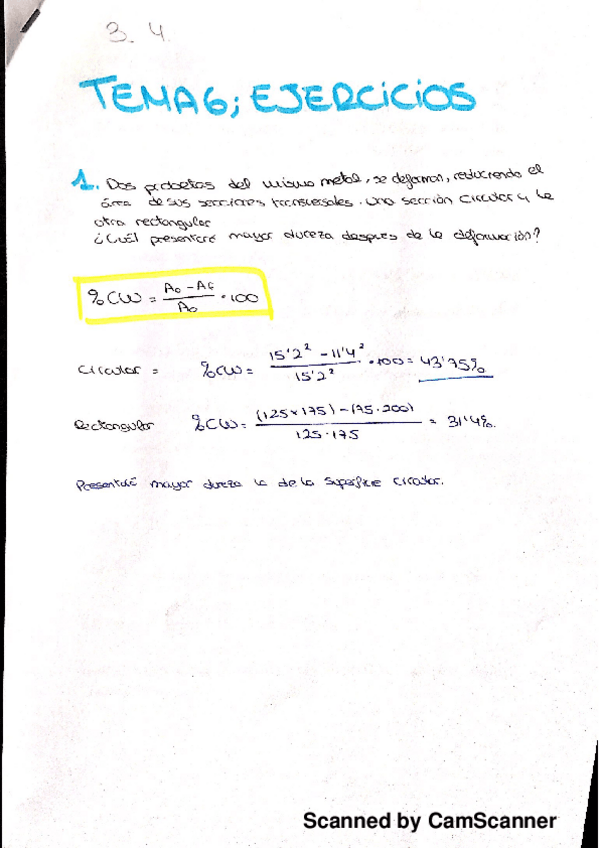 3. 4.
TEMA 6; EJERCICIOS
1. Dos probetas del mismo metal, se deforman, reduciendo el
área de sus secciones transversales. Una sección circular y la
otra rectangular
¿Cuál presentará mayor dureza después de la deformación?
%CW = (A₀ - Af / A₀) · 100
Circular = %CW = (15'2² - 11'4² / 15'2²) · 100 = 43'75%
Rectangular %CW = ((125x175) - (75·200) / 125·175) = 31'4%.
Presentará mayor dureza la de la superficie circular.
Scanned by CamScanner